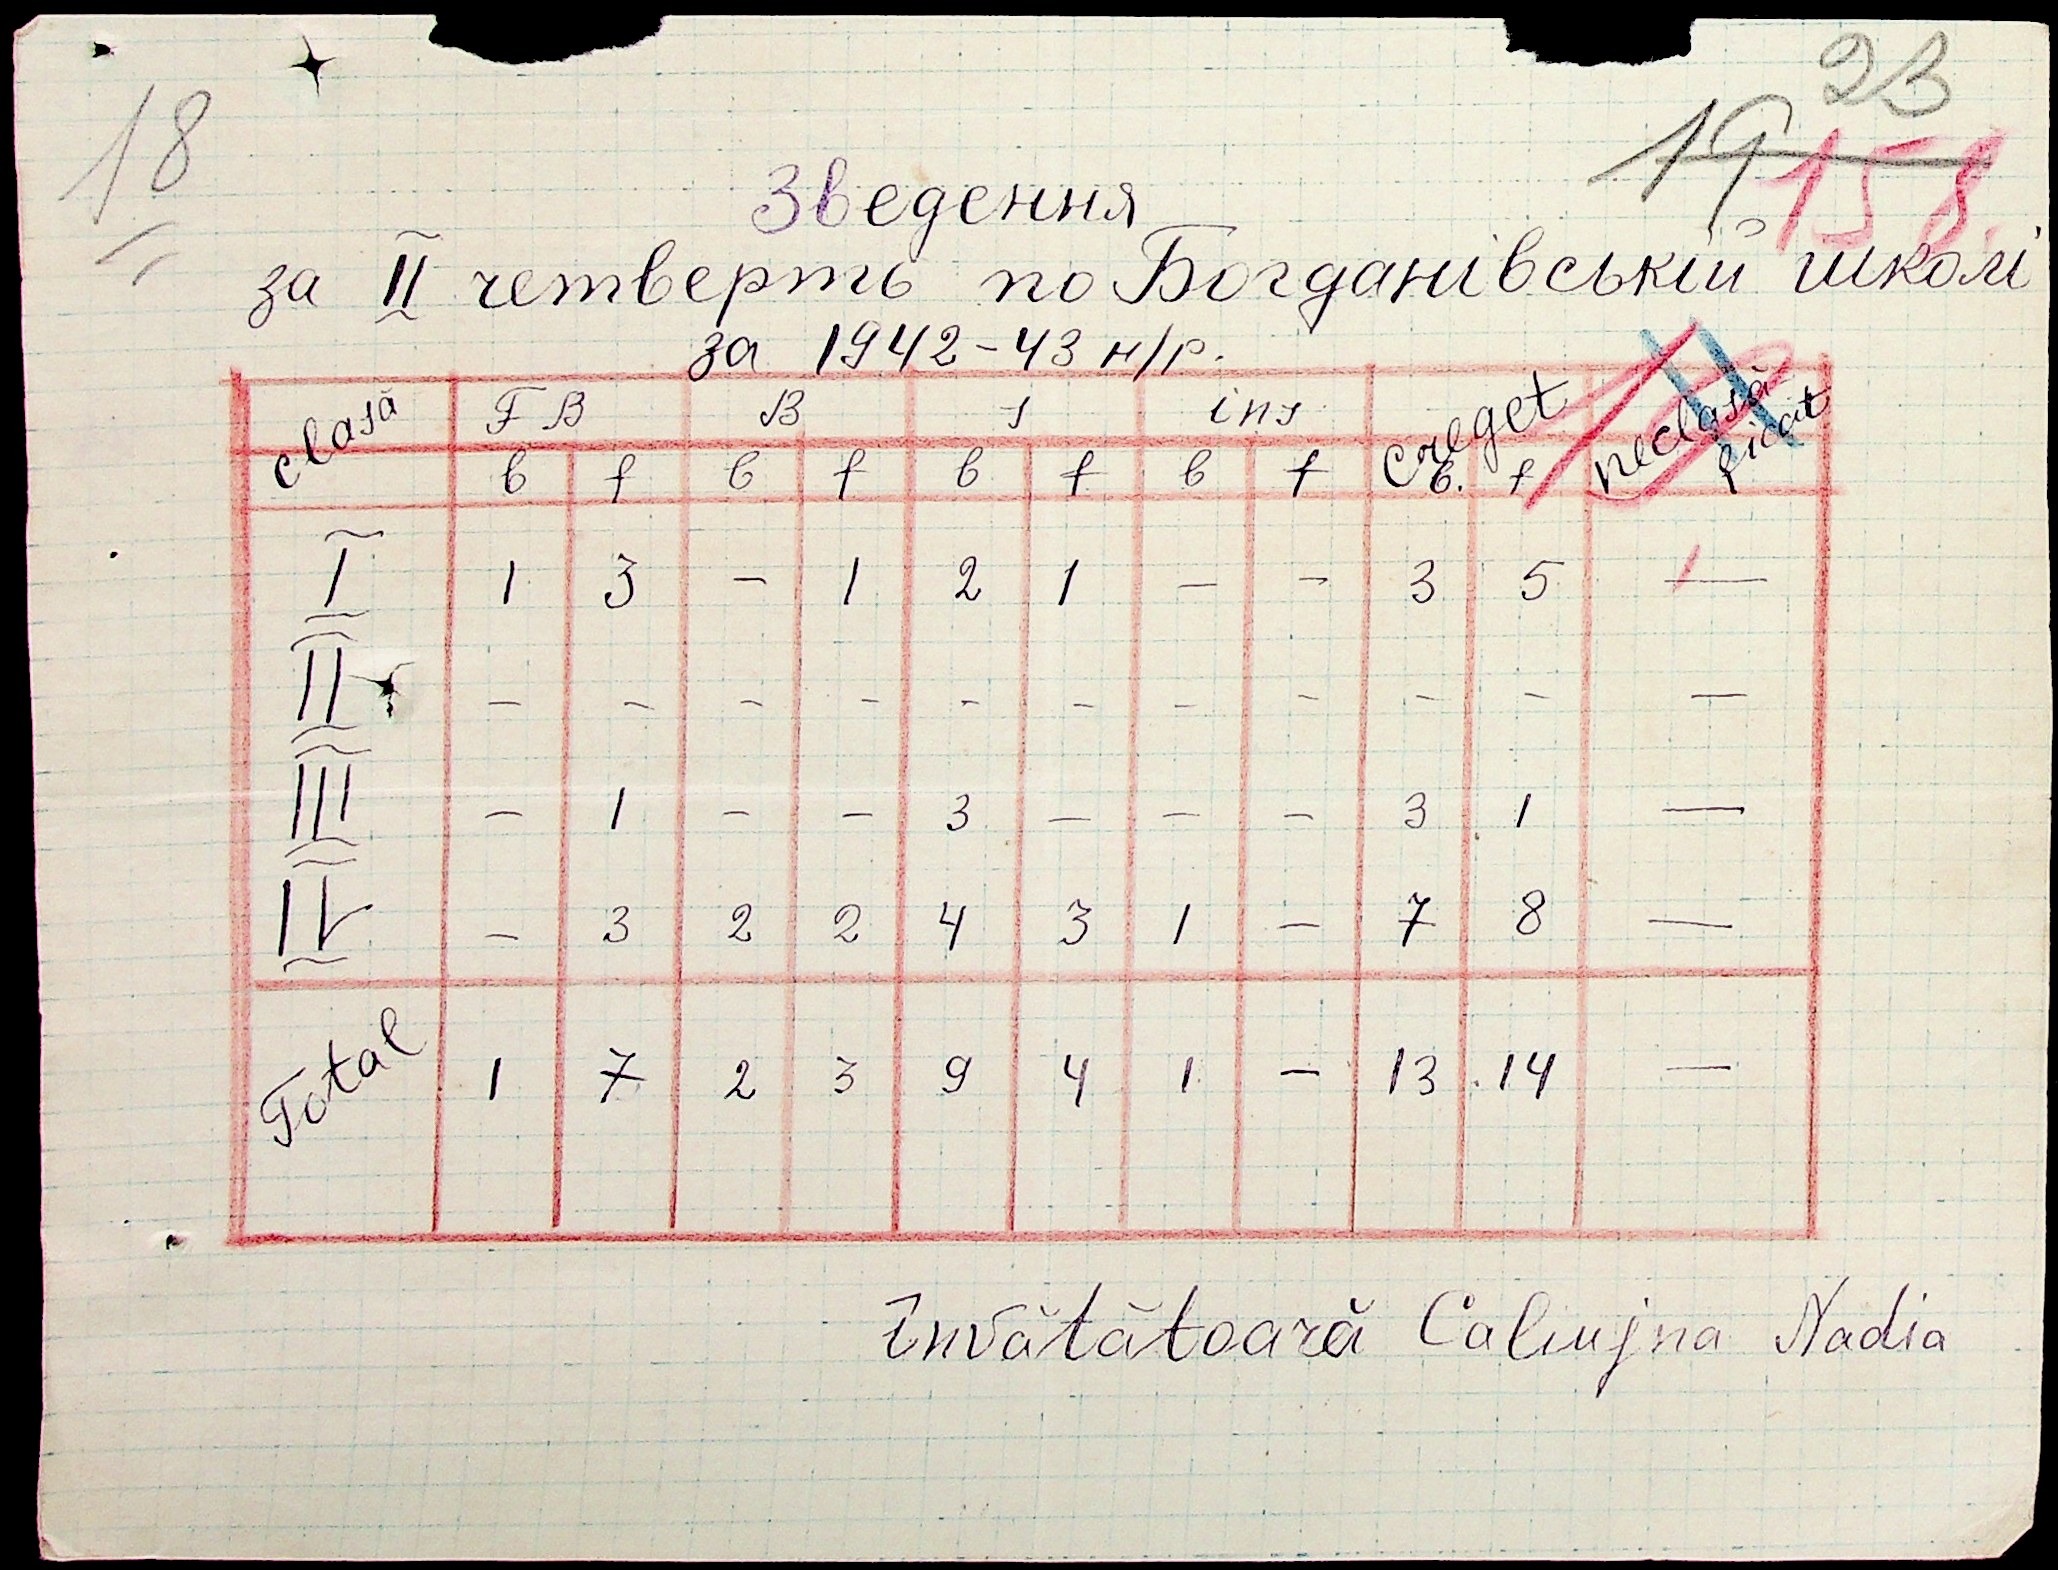 18
23
19 158
Зведення
за II четверть по Богданівській школі
за 1942-43 н/р.
clasă FB B s ins creget neclasă ficat
b f b f b f b f b. f
I 1 3 - 1 2 1 - - 3 5 —
II - - - - - - - - - - —
III - 1 - - 3 - - - 3 1 —
IV - 3 2 2 4 3 1 - 7 8 —
Total 1 7 2 3 9 4 1 - 13 14 —
Învătătoară Caliujna Nadia